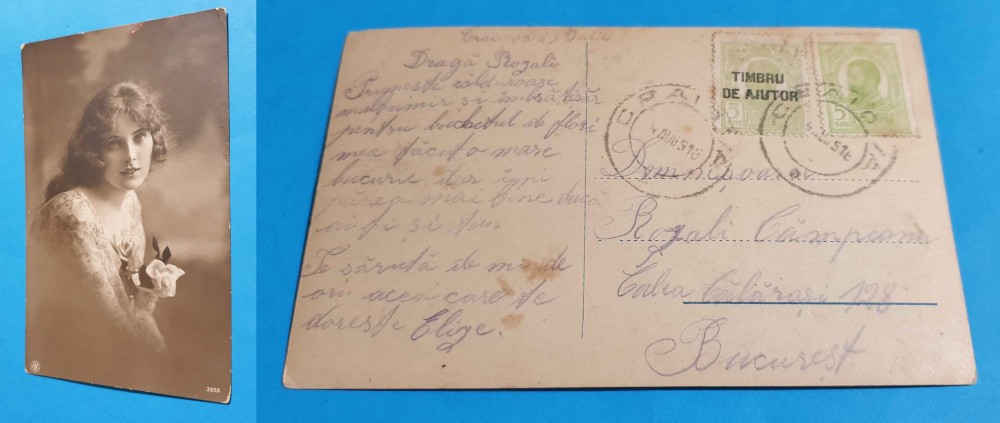 3959
Craiova 23 Iulie
Dragă Rozali
Primește călduroase
mulțumir și îmbrățișăr
pentru buchetul de flori
mia făcut o mare
bucurie dar îmi
părea mai bine dacă
ai fi și tu.
Te sărută de mi de
ori acea care te
dorește Elize.
TIMBRU
DE AJUTOR
5
5
CRAIOVA
4 AUG 916
CRAIOVA
4 AUG 916
Domnișoarei
Rozali Câmpeanu
Calea Călărași 128
Bucureșt